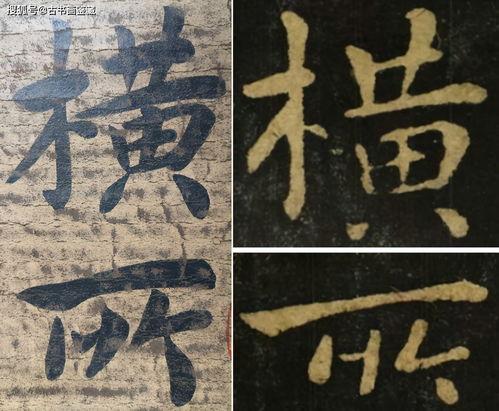 搜狐号@古书画鉴藏
横
所
横
所